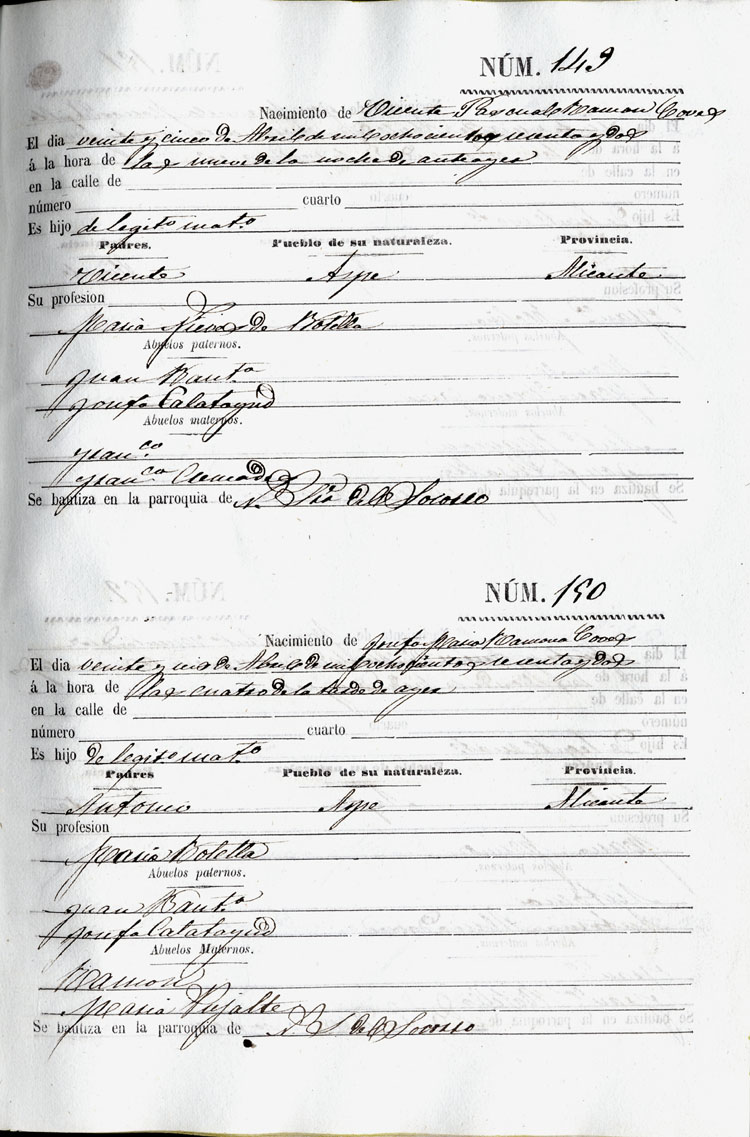 NÚM. 149
Nacimiento de Vicente Pascual Ramon Cores
El dia veinte y cinco de Abril de mil ochocientos sesenta y dos
á la hora de las nueve de la noche de anteayer
en la calle de
número cuarto
Es hijo de legit.o mat.o
Padres. Pueblo de su naturaleza. Provincia.
Vicente Aspe Alicante
Su profesion
Maria Nieves de Botella
Abuelos paternos.
Juan Baut.a
Josefa Calatayud
Abuelos maternos.
Fran.co
Fran.ca
Se bautiza en la parroquia de N. Sra del Socorro
NÚM. 150
Nacimiento de Josefa Maria Ramona Cores
El dia veinte y seis de Abril de mil ochocientos sesenta y dos
á la hora de las cuatro de la tarde de ayer
en la calle de
número cuarto
Es hijo de legit.o mat.o
Padres Pueblo de su naturaleza. Provincia.
Antonio Aspe Alicante
Su profesion
Maria Botella
Abuelos paternos.
Juan Baut.a
Josefa Calatayud
Abuelos Maternos.
Ramon
Maria Pujalte
Se bautiza en la parroquia de N. S. del Socorro